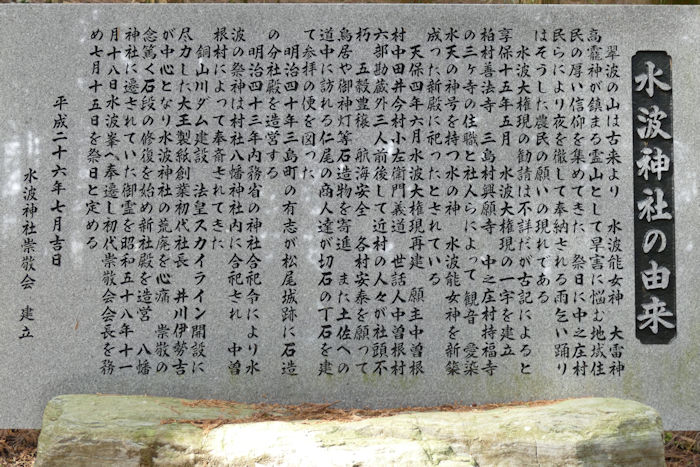 水波神社の由来
翠波の山は古来より 水波能女神 大雷神
高龗神が鎮まる霊山として旱害に悩む地域住
民の厚い信仰を集めてきた 祭日に中之庄村
民らにより夜を徹して奉納される雨乞い踊り
はそうした農民の願いの現れである
水波大権現の勧請は不詳だが古記によると
享保十五年五月 水波大権現の一宇を建立
柏村善法寺 三島村興願寺 中之庄村持福寺
の三ヶ寺の住職と社人らによって観音 愛染
水天の神号を持つ水の神 水波能女神を新築
成った新殿に祀ったとされている
天保四年六月水波大権現再建 願主中曽根
村中田井今村小左衛門義道 世話人中曽根村
六部勘蔵外三人前後して近村の人々が社頭不
朽 五穀豊穣 航海安全 各村安泰を願って
鳥居や御神灯等石造物を寄進 また土佐への
道中に訪れる仁尾の商人達が切石の丁石を建
て参拝の便を図った
明治四十年三島町の有志が松尾城跡に石造
の分社殿を造営する
明治四十三年内務省の神社合祀令により水
波の祭神は村社八幡神社内に合祀され 中曽
根村によって奉斎されてきた
銅山川ダム建設 法皇スカイライン開設に
尽力した大王製紙創業初代社長 井川伊勢吉
が中心となり水波神社の荒廃を心痛 崇敬の
念篤く石段の修復を始め新社殿を造営 八幡
神社に遷されていた御霊を昭和五十八年十一
月十八日水波峯へ奉遷し初代崇敬会会長を務
め七月十五日を祭日と定める
平成二十六年七月吉日
水波神社崇敬会 建立